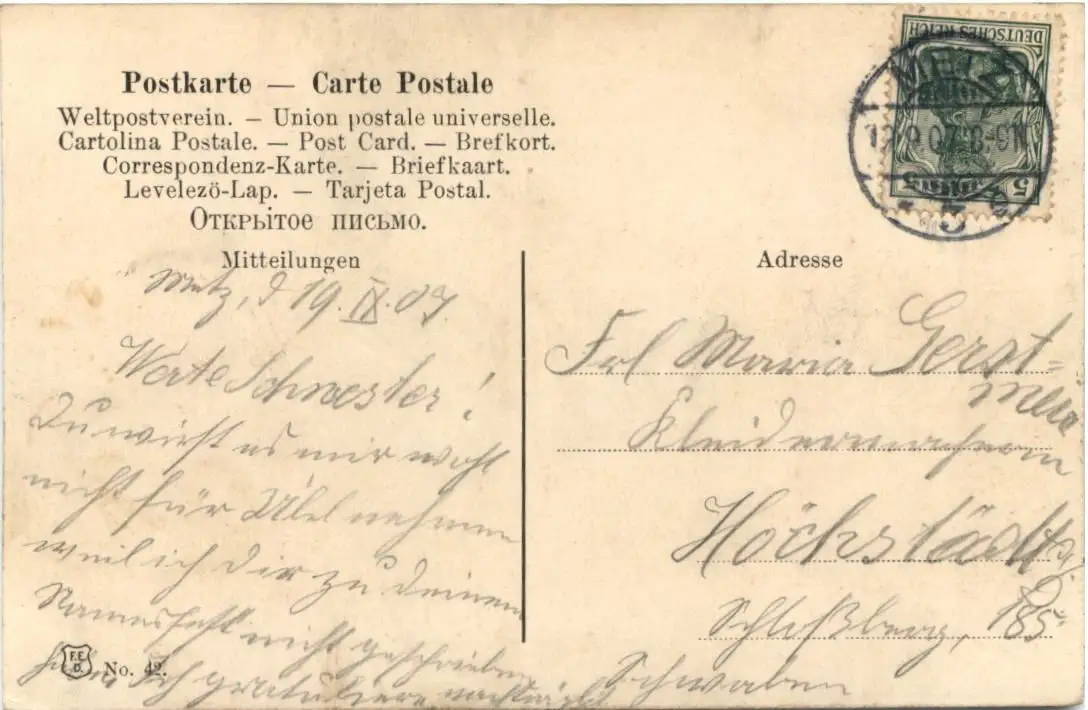 Postkarte — Carte Postale
Weltpostverein. — Union postale universelle.
Cartolina Postale. — Post Card. — Brefkort.
Correspondenz-Karte. — Briefkaart.
Levelezö-Lap. — Tarjeta Postal.
Открытое письмо.
DEUTSCHES REICH
5 5
METZ
19.9.07. 8-9N
5
Mitteilungen
Metz, d 19. IX. 07.
Werte Schwester!
Du wirst es mir wohl
nicht für Übel nehmen
weil ich Dir zu deinem
Namensfest nicht geschrieben
habe. Ich gratuliere nachträgl
F.E.D. No. 42.
Adresse
Frl Maria Gerst=
Kleidermacherin
Höchstädt
Schloßberg, 185.
Schwaben